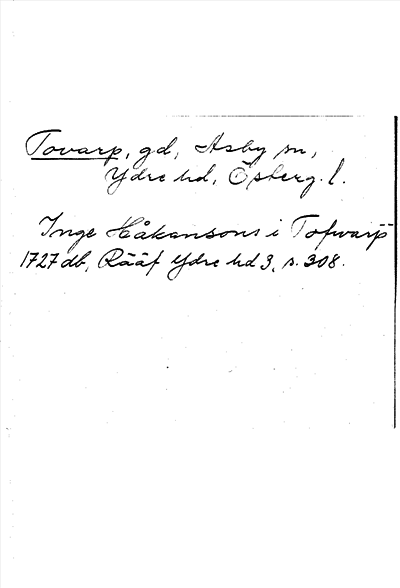 Tovarp, gd, Asby sn,
Ydre hd, Österg. l.
Inge Håkansons i Tofvarp
1727 db, Rääf Ydre hd 3, s. 308.